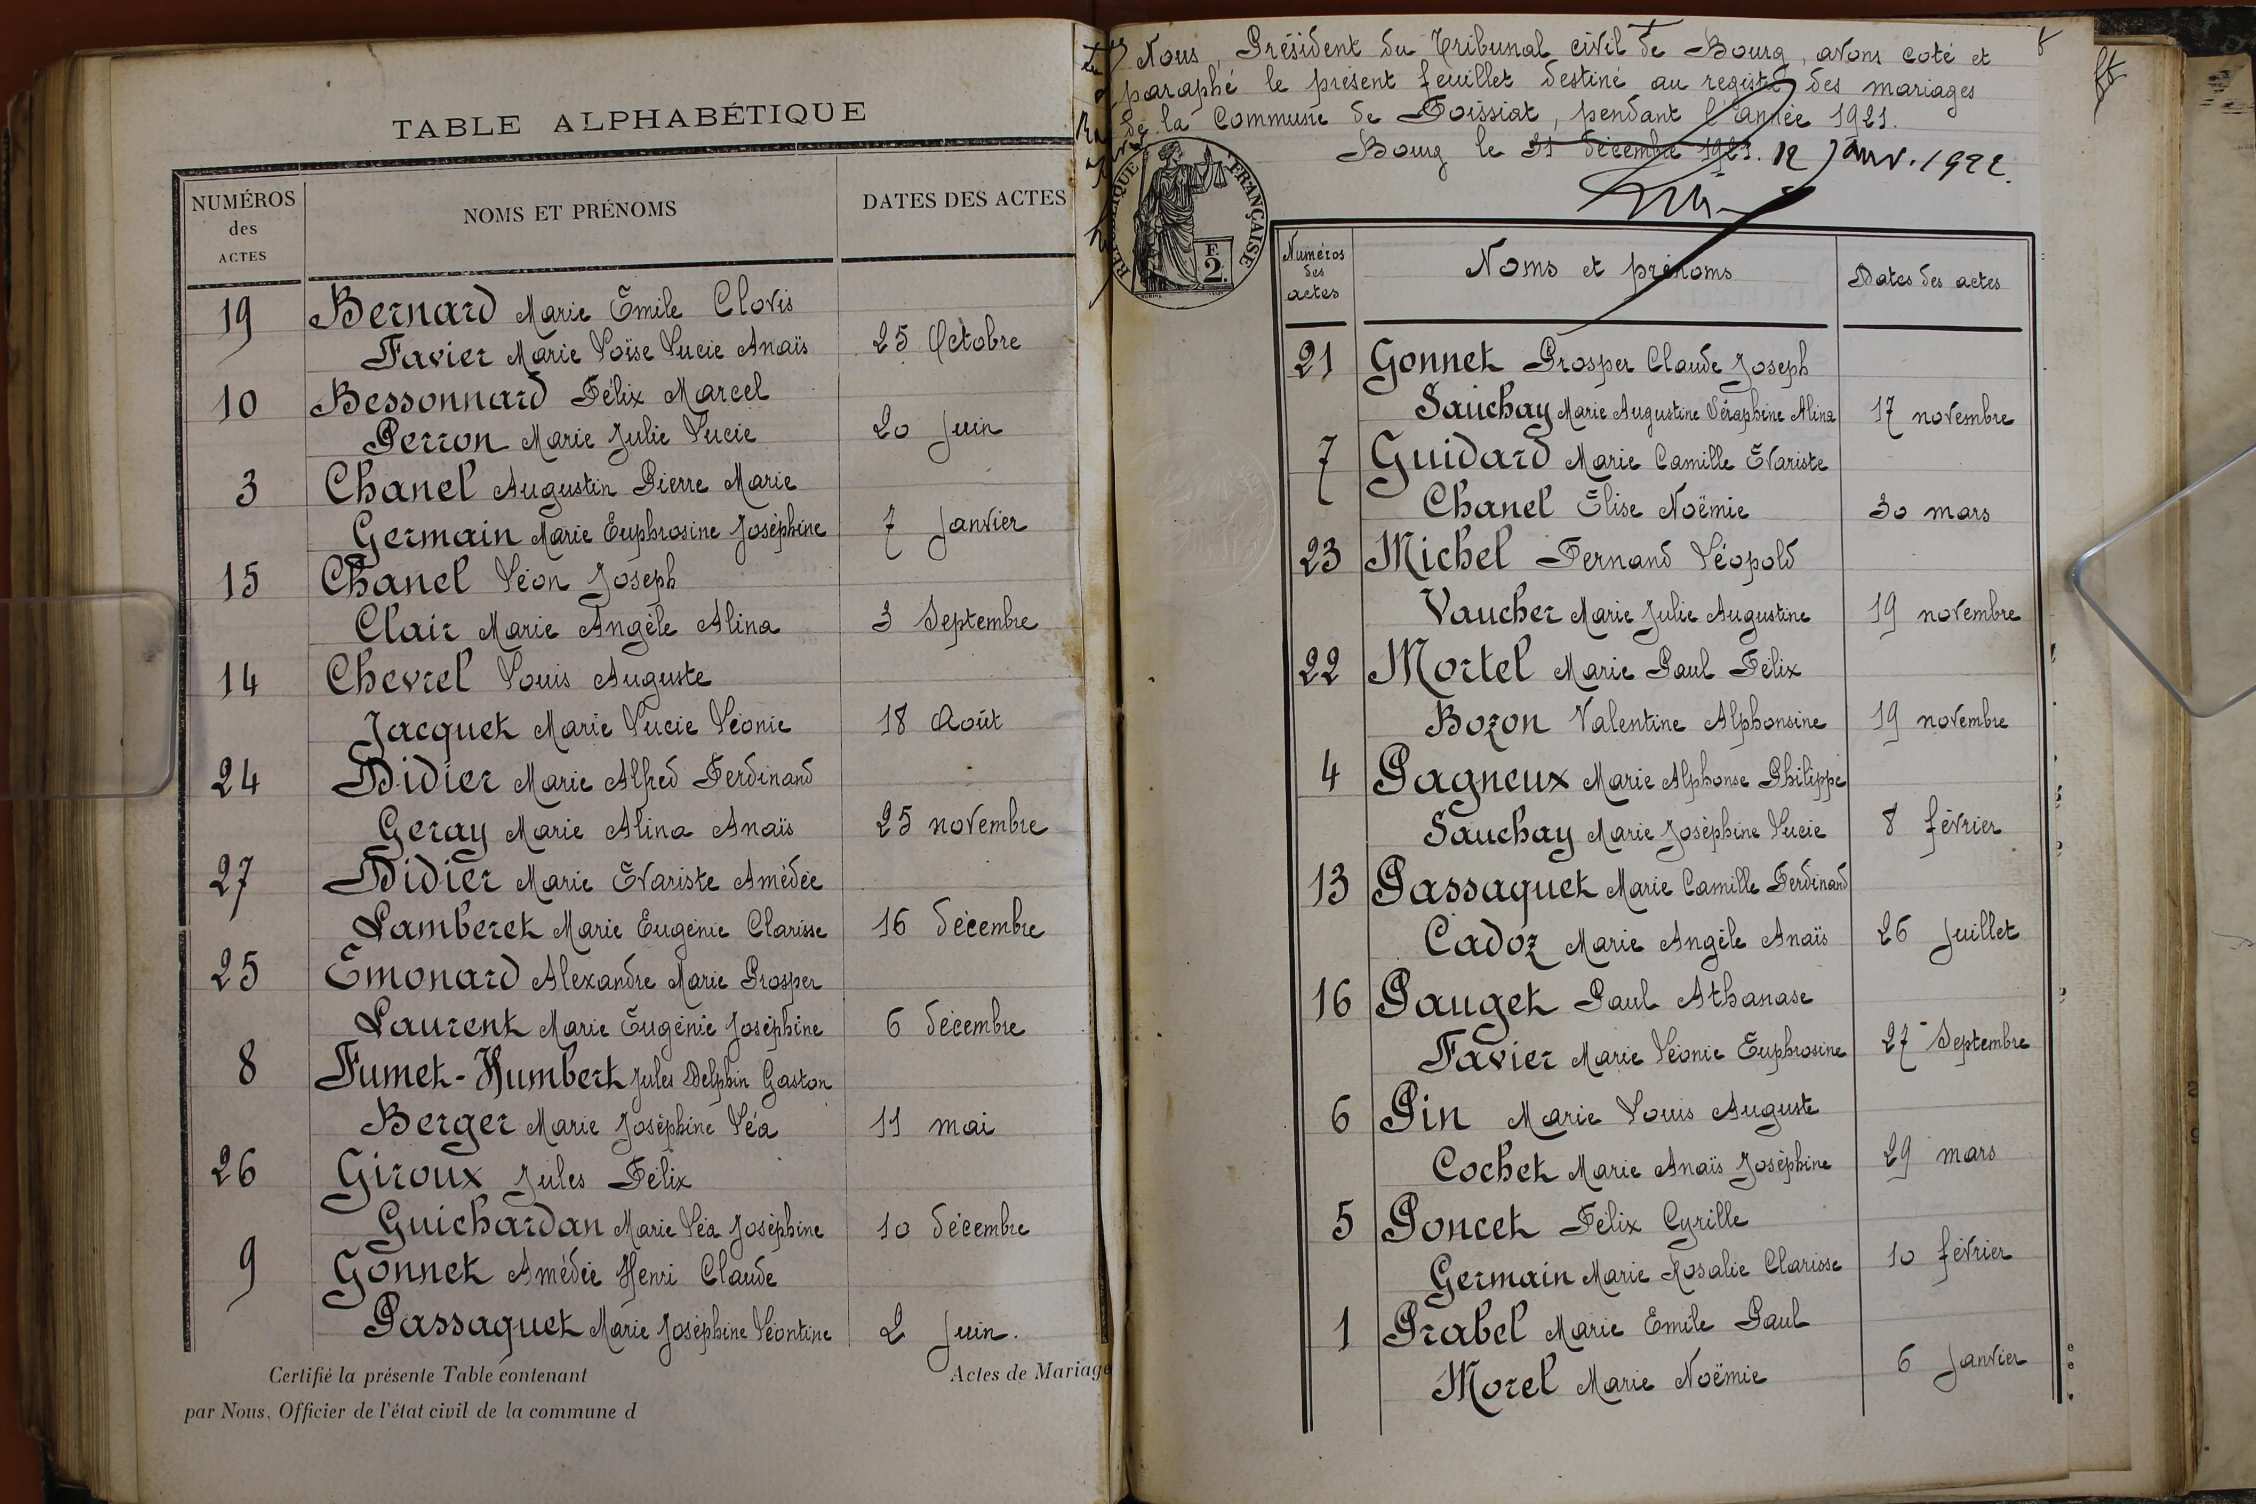 TABLE ALPHABÉTIQUE
NUMÉROS
des
ACTES
NOMS ET PRÉNOMS
DATES DES ACTES
19 Bernard Marie Emile Clovis
Favier Marie Loïse Lucie Anaïs 25 Octobre
10 Bessonnard Félix Marcel
Perron Marie Julie Lucie 20 Juin
3 Chanel Augustin Pierre Marie
Germain Marie Euphrosine Joséphine 7 Janvier
15 Chanel Léon Joseph
Clair Marie Angèle Alina 3 Septembre
14 Chevrel Louis Auguste
Jacquet Marie Lucie Léonie 18 Août
24 Didier Marie Alfred Ferdinand
Geray Marie Alina Anaïs 25 novembre
27 Didier Marie Evariste Amédée
Lamberet Marie Eugénie Clarisse 16 décembre
25 Emonard Alexandre Marie Prosper
Laurent Marie Eugénie Joséphine 6 décembre
8 Fumet-Humbert Jules Delphin Gaston
Berger Marie Joséphine Léa 11 mai
26 Giroux Jules Félix
Guichardan Marie Léa Joséphine 10 décembre
9 Gonnet Amédée Henri Claude
Passaquet Marie Joséphine Léontine 2 Juin.
Certifié la présente Table contenant Actes de Mariage
par Nous, Officier de l'état civil de la commune d
Nous, Président du Tribunal civil de Bourg, avons coté et
paraphé le présent feuillet destiné au registre des mariages
de la Commune de Foissiat, pendant l'année 1921.
Bourg le 31 décembre 1921. 12 Janv. 1922.
RÉPUBLIQUE FRANÇAISE
F
2
Numéros
des
actes
Noms et prénoms
Dates des actes
21 Gonnet Prosper Claude Joseph
Sauchay Marie Augustine Séraphine Alina 17 novembre
7 Guidard Marie Camille Evariste
Chanel Elise Noëmie 30 mars
23 Michel Fernand Léopold
Vaucher Marie Julie Augustine 19 novembre
22 Mortel Marie Paul Félix
Bozon Valentine Alphonsine 19 novembre
4 Pagneux Marie Alphonse Philippe
Sauchay Marie Joséphine Lucie 8 février
13 Passaquet Marie Camille Ferdinand
Cadoz Marie Angèle Anaïs 26 Juillet
16 Pauget Paul Athanase
Favier Marie Léonie Euphrosine 27 Septembre
6 Pin Marie Louis Auguste
Cochet Marie Anaïs Joséphine 29 mars
5 Poncet Félix Cyrille
Germain Marie Rosalie Clarisse 10 février
1 Prabel Marie Emile Paul
Morel Marie Noëmie 6 Janvier